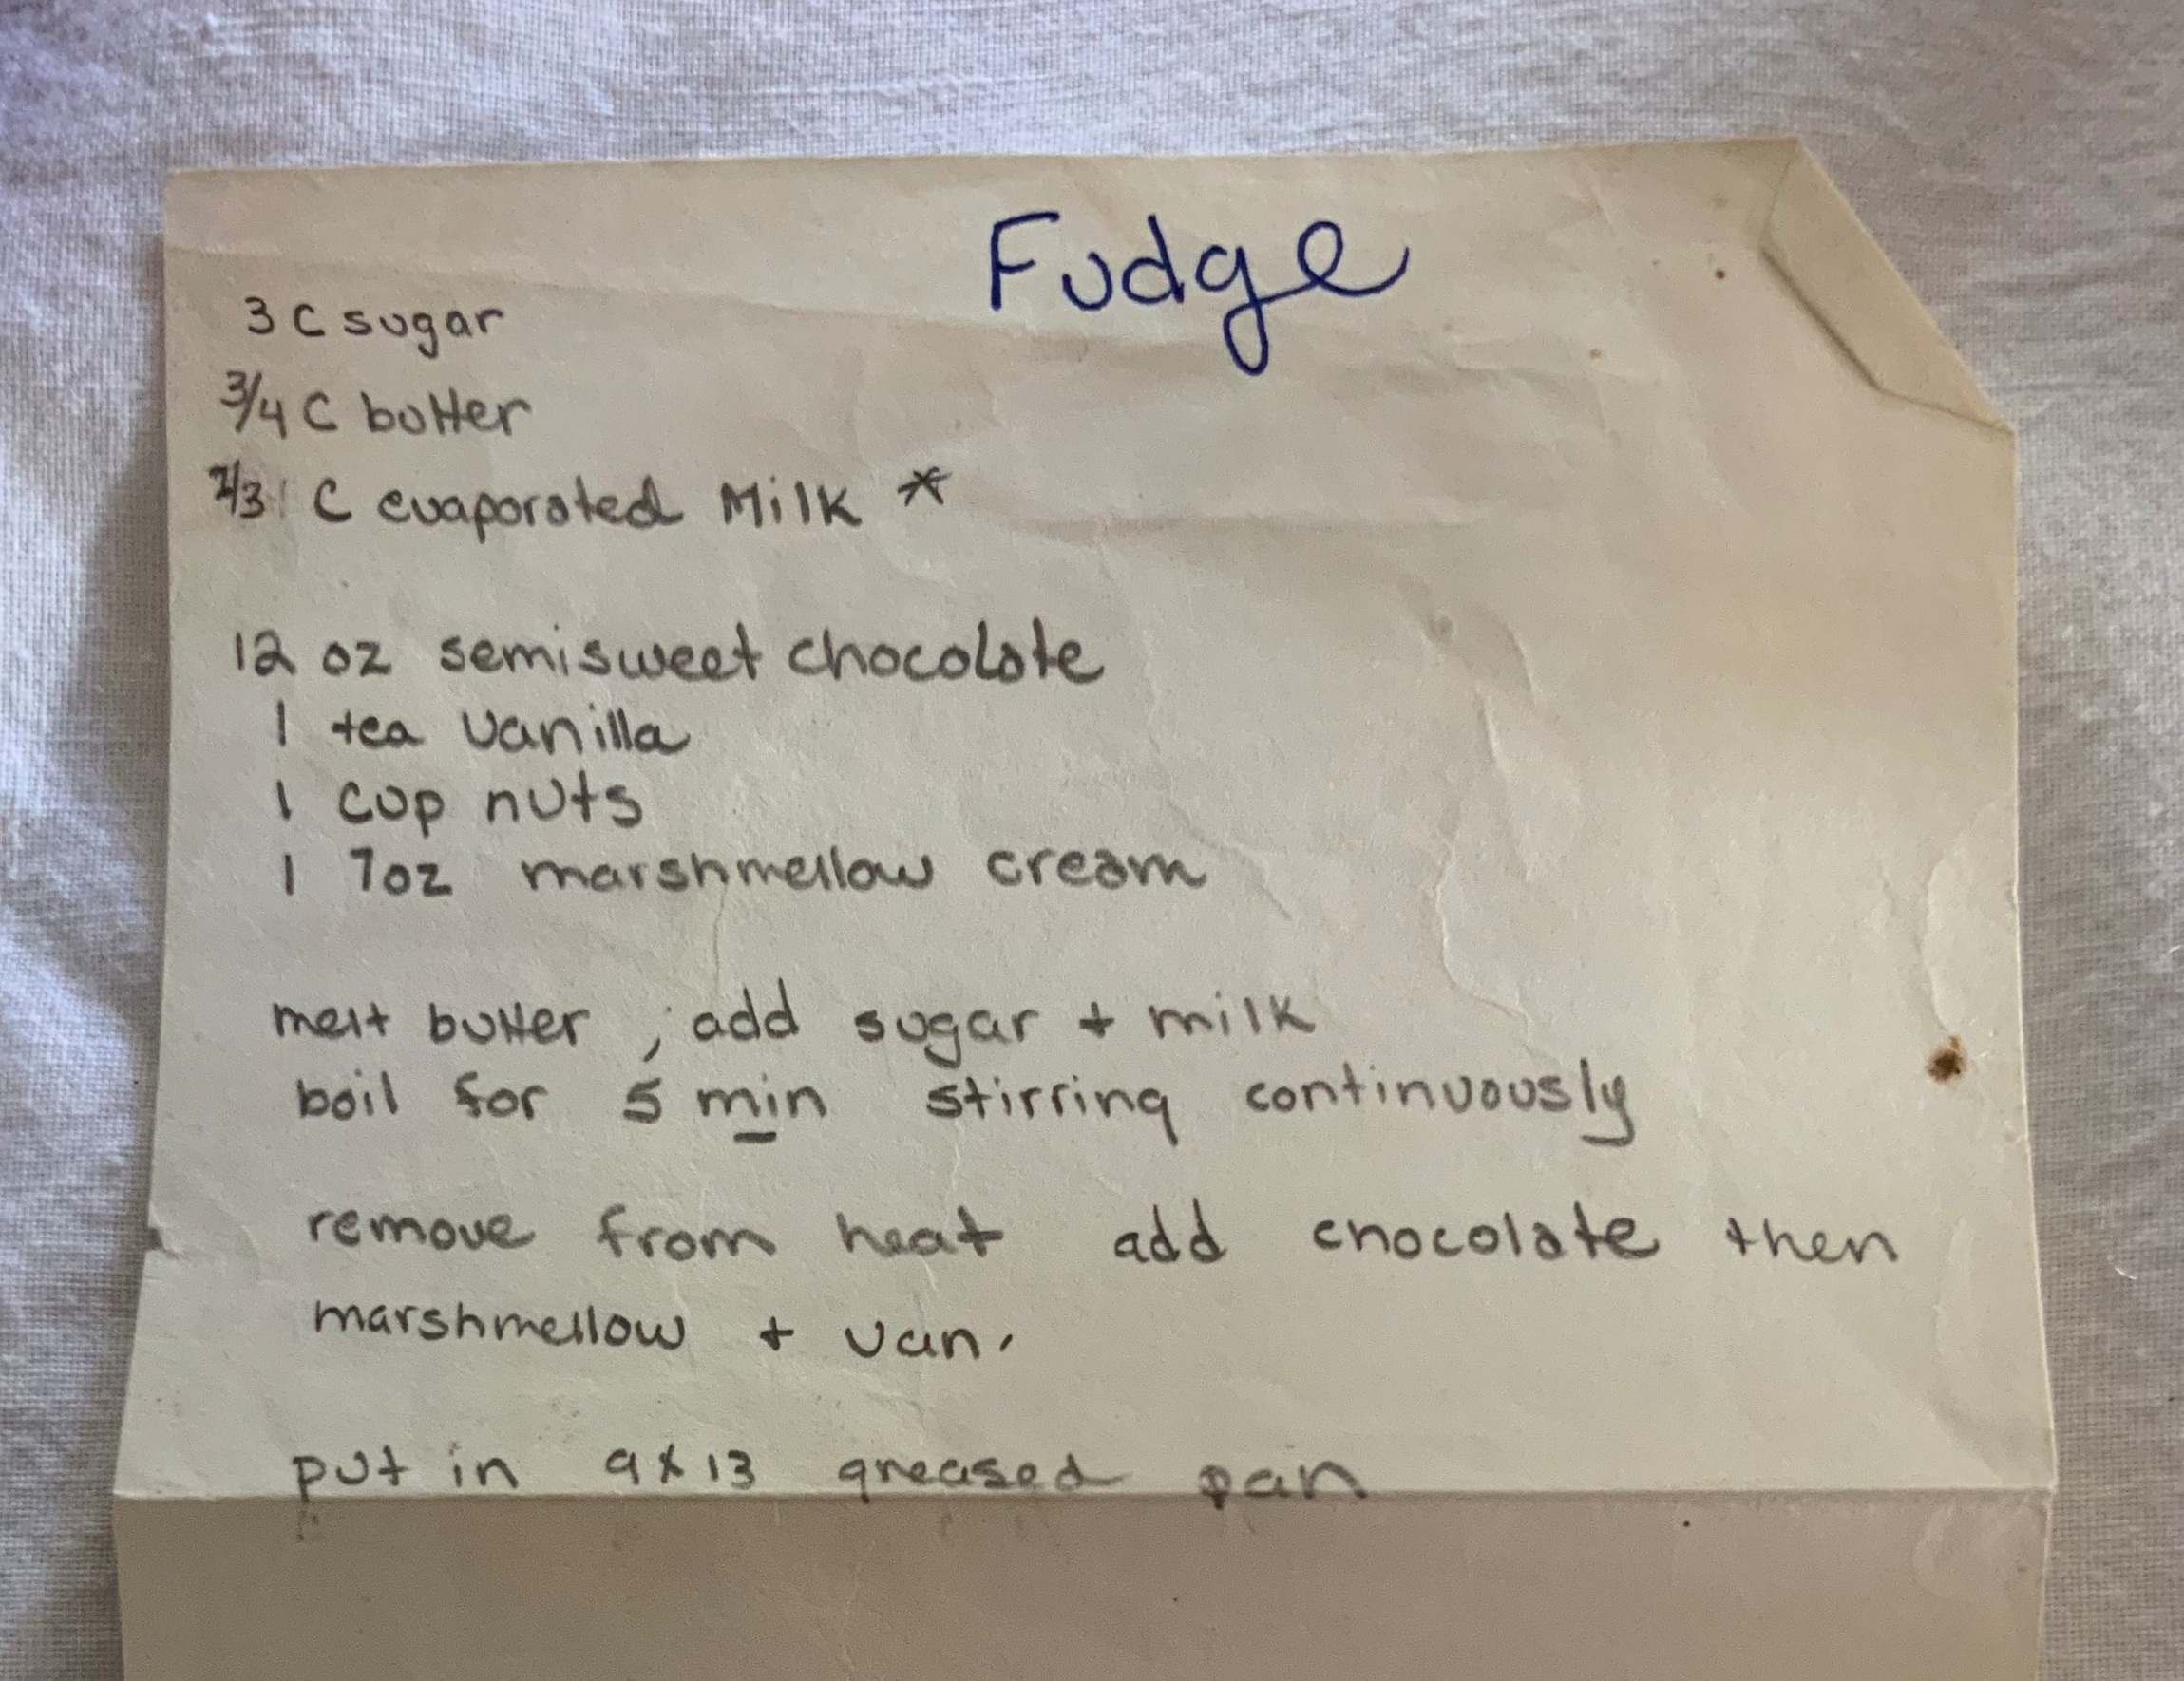 Fudge
3 C sugar
3/4 C butter
2/3 C evaporated Milk *
12 oz semisweet chocolate
1 tea vanilla
1 cup nuts
1 7oz marshmellow cream
melt butter , add sugar + milk
boil for 5 min stirring continuously
remove from heat add chocolate then
marshmellow + van.
put in 9x13 greased pan